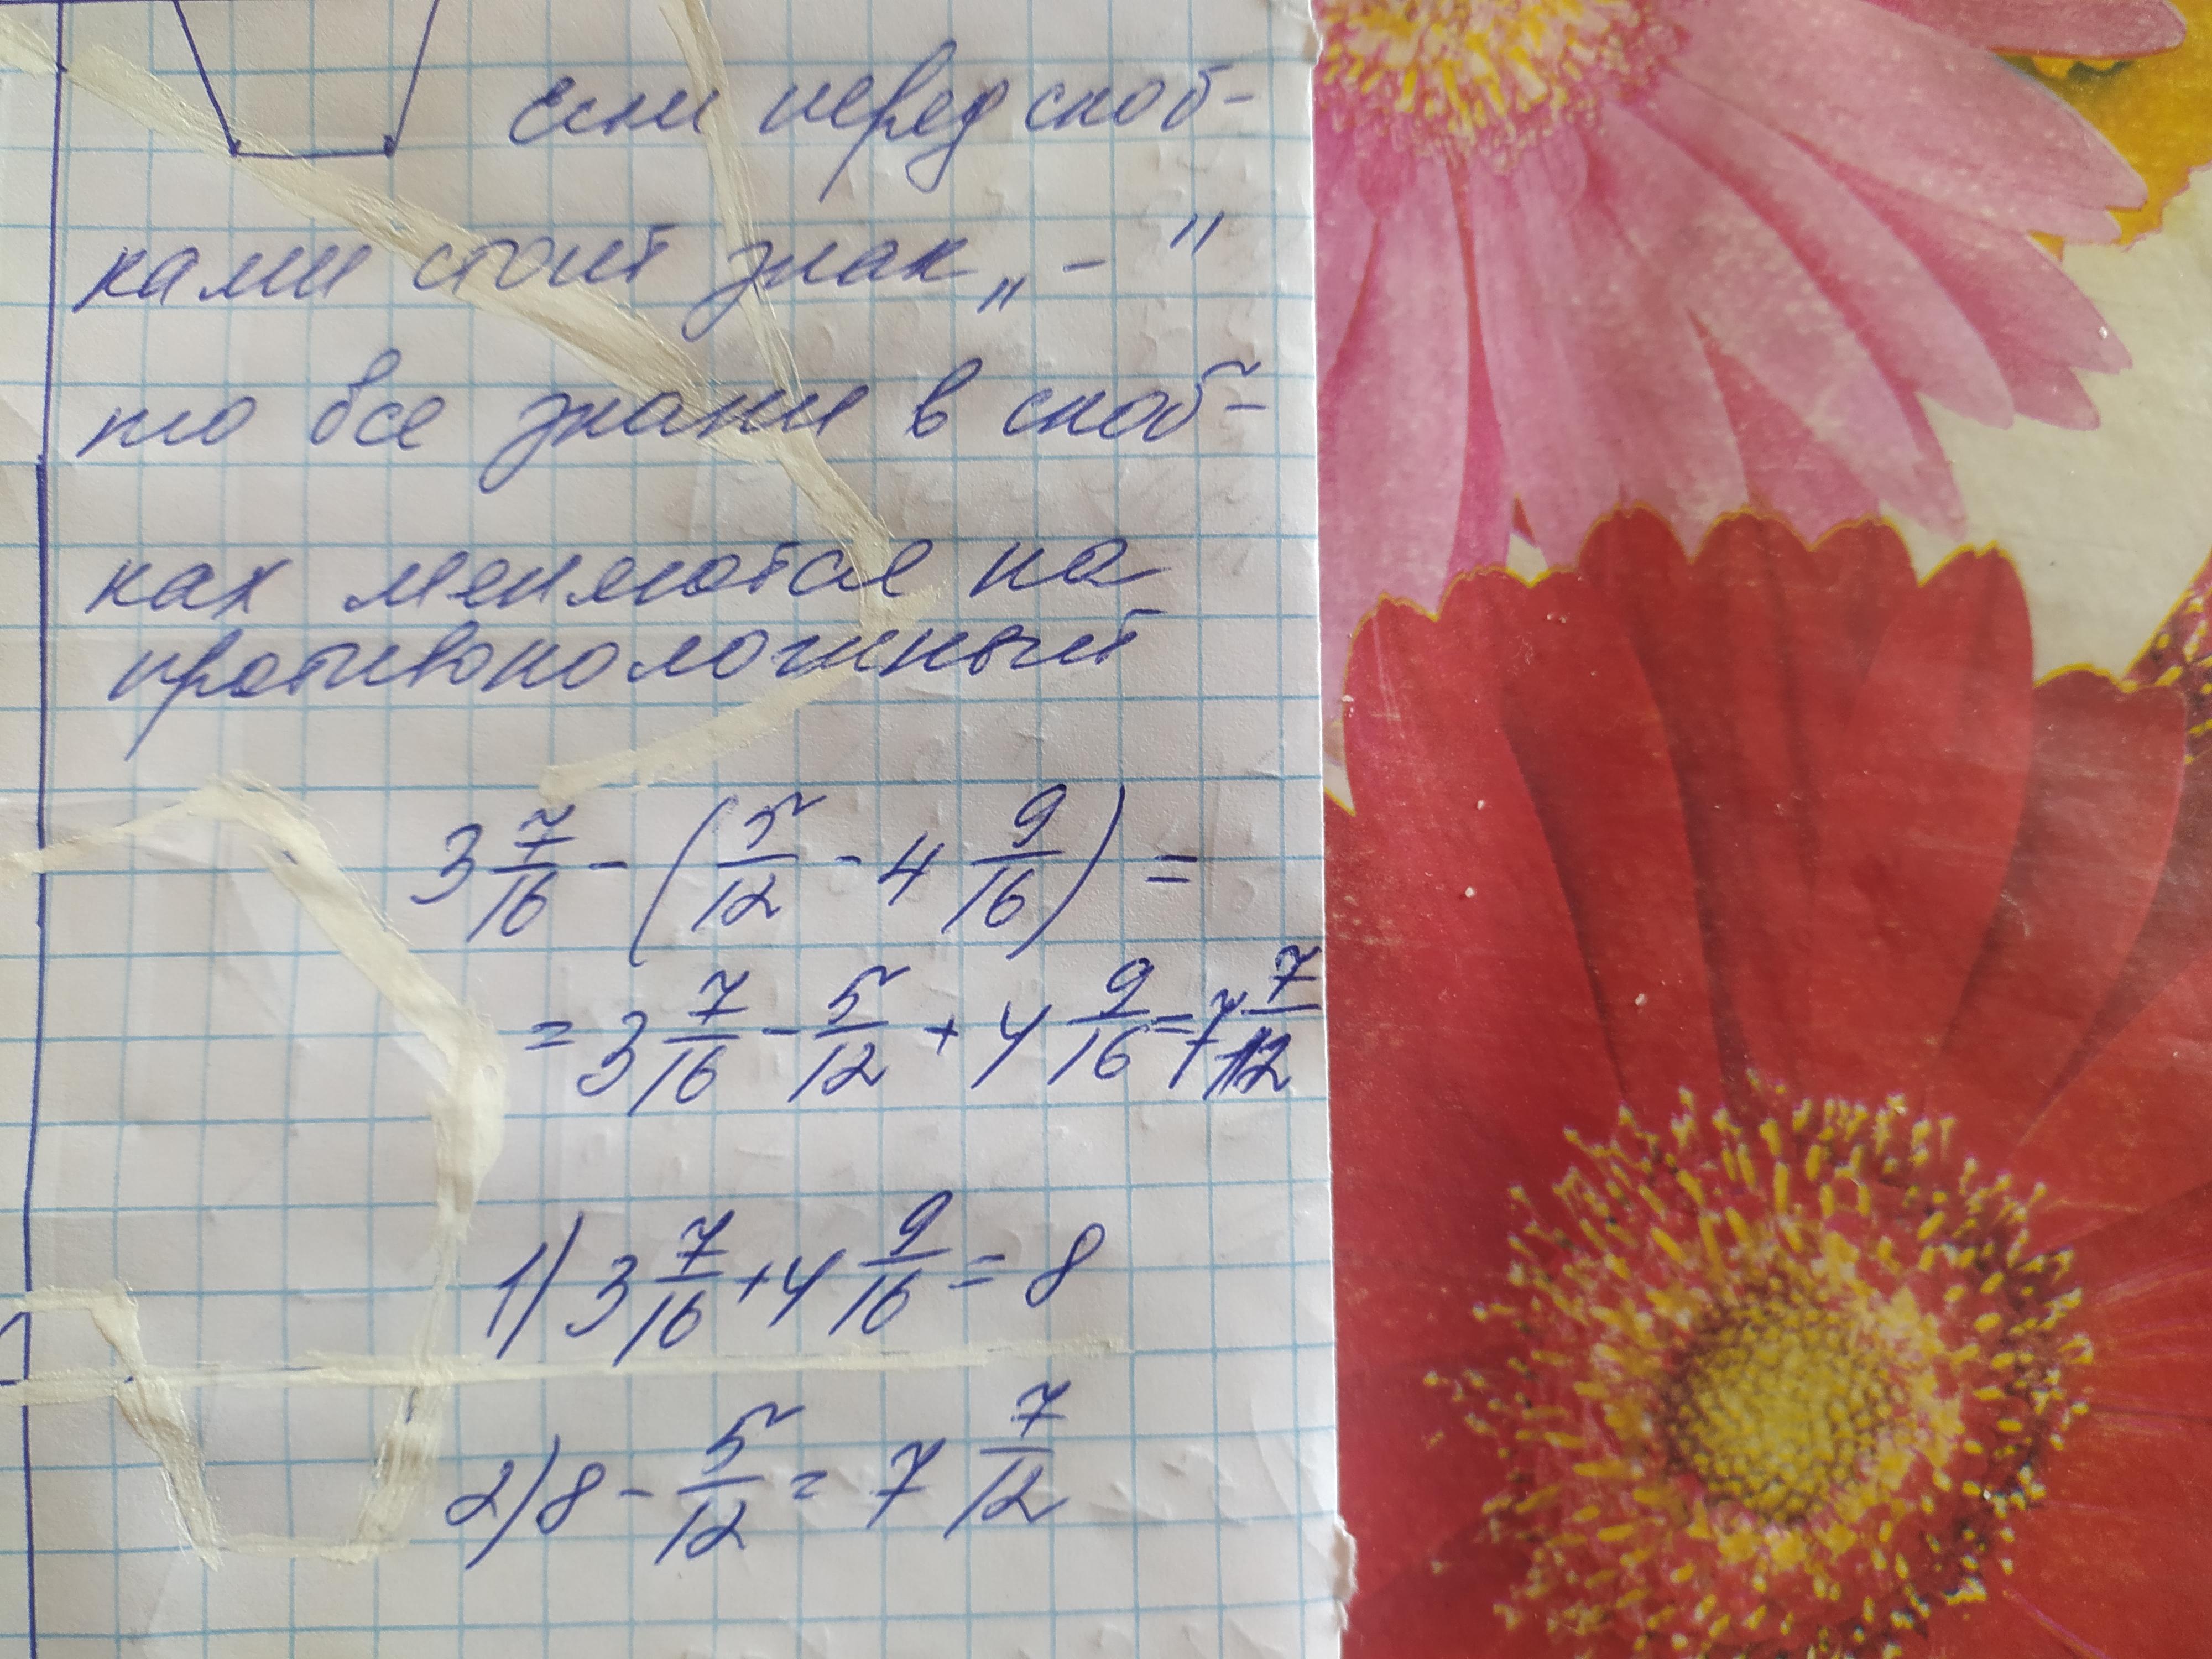 Если перед скоб-
ками стоит знак „ - "
то все знаки в скоб-
ках меняются на
противоположный
3 7/16 - (5/12 - 4 9/16) =
= 3 7/16 - 5/12 + 4 9/16 = 7 7/12
1) 3 7/16 + 4 9/16 = 8
2) 8 - 5/12 = 7 7/12